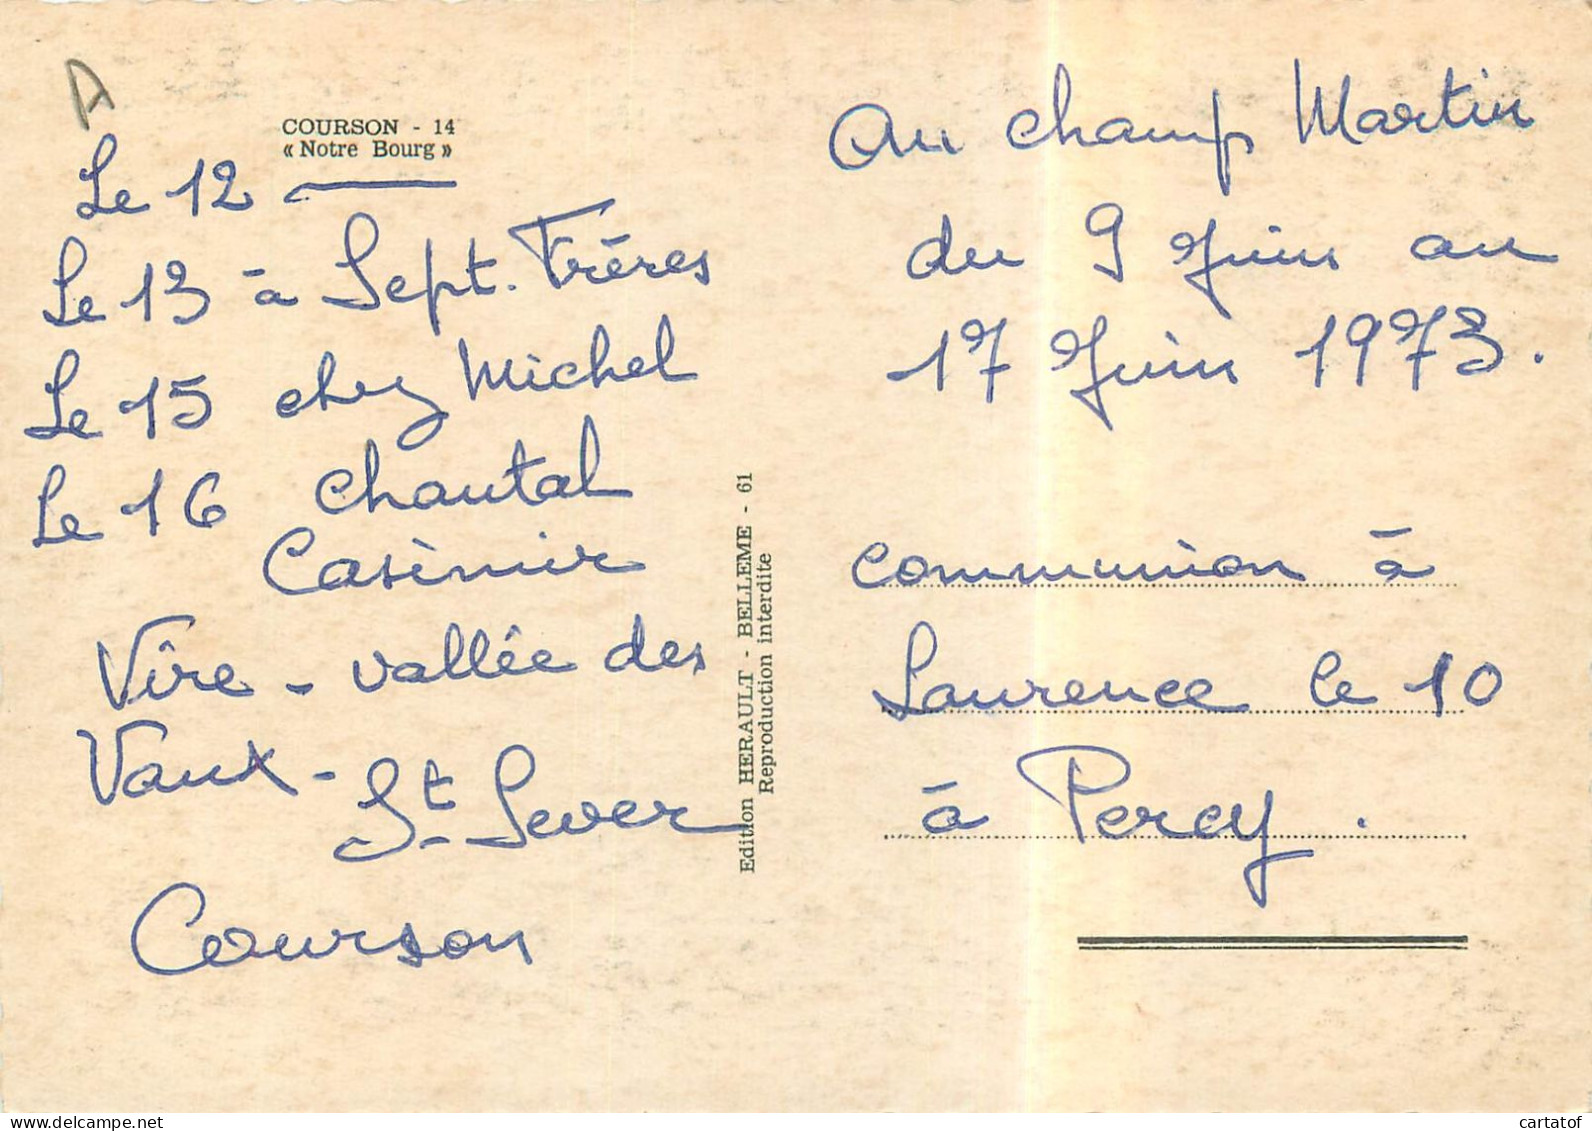 A
COURSON - 14
« Notre Bourg »
Le 12
Le 13 à Sept. Frères
Le 15 chez Michel
Le 16 Chantal
Casimir
Vire - vallée des
Vaux -
St Sever
Courson
Edition HERAULT - BELLEME - 61
Reproduction interdite
Au champ Martin
du 9 Juin au
17 Juin 1973.
Communion à
Laurence le 10
à Percy.
www.delcampe.net
cartatof